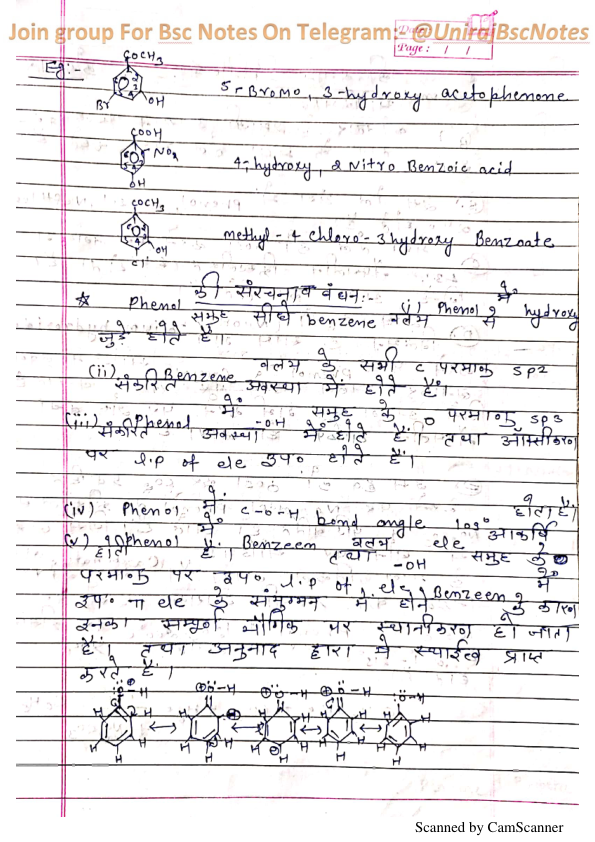 Join group For Bsc Notes On Telegram:- @UnirajBscNotes
Page: / /
Eg:-
COCH3
Br OH
5-Bromo, 3-hydroxy acetophenone
COOH
NO2
OH
4-hydroxy, 2 Nitro Benzoic acid
COCH3
OH
Cl
methyl-4 chloro-3hydroxy Benzoate
☆ Phenol की संरचना व बंधन:- (i) Phenol में hydroxy
समूह सीधे benzene वलय से
जुड़े होते हैं।
(ii) Benzene वलय के सभी C परमाणु sp2
संकरित अवस्था में होते हैं।
(iii) Phenol में -OH समूह के O परमाणु sp3
संकरित अवस्था में होते हैं। तथा ऑक्सीजन
पर l.p of ele उप० होते हैं।
(iv) Phenol में C-O-H bond angle 109° होता है।
(v) Phenol में Benzeen वलय ele आकर्षि
होती है। तथा -OH समूह के O
परमाणु पर उप० l.p of ele, Benzeen में
उप० π ele के संयुग्मन में होने के कारण
इनका सम्पूर्ण यौगिक पर स्थानीकरण हो जाता
है। तथा अनुनाद द्वारा ये स्थाईत्व प्राप्त
करते हैं।
Scanned by CamScanner